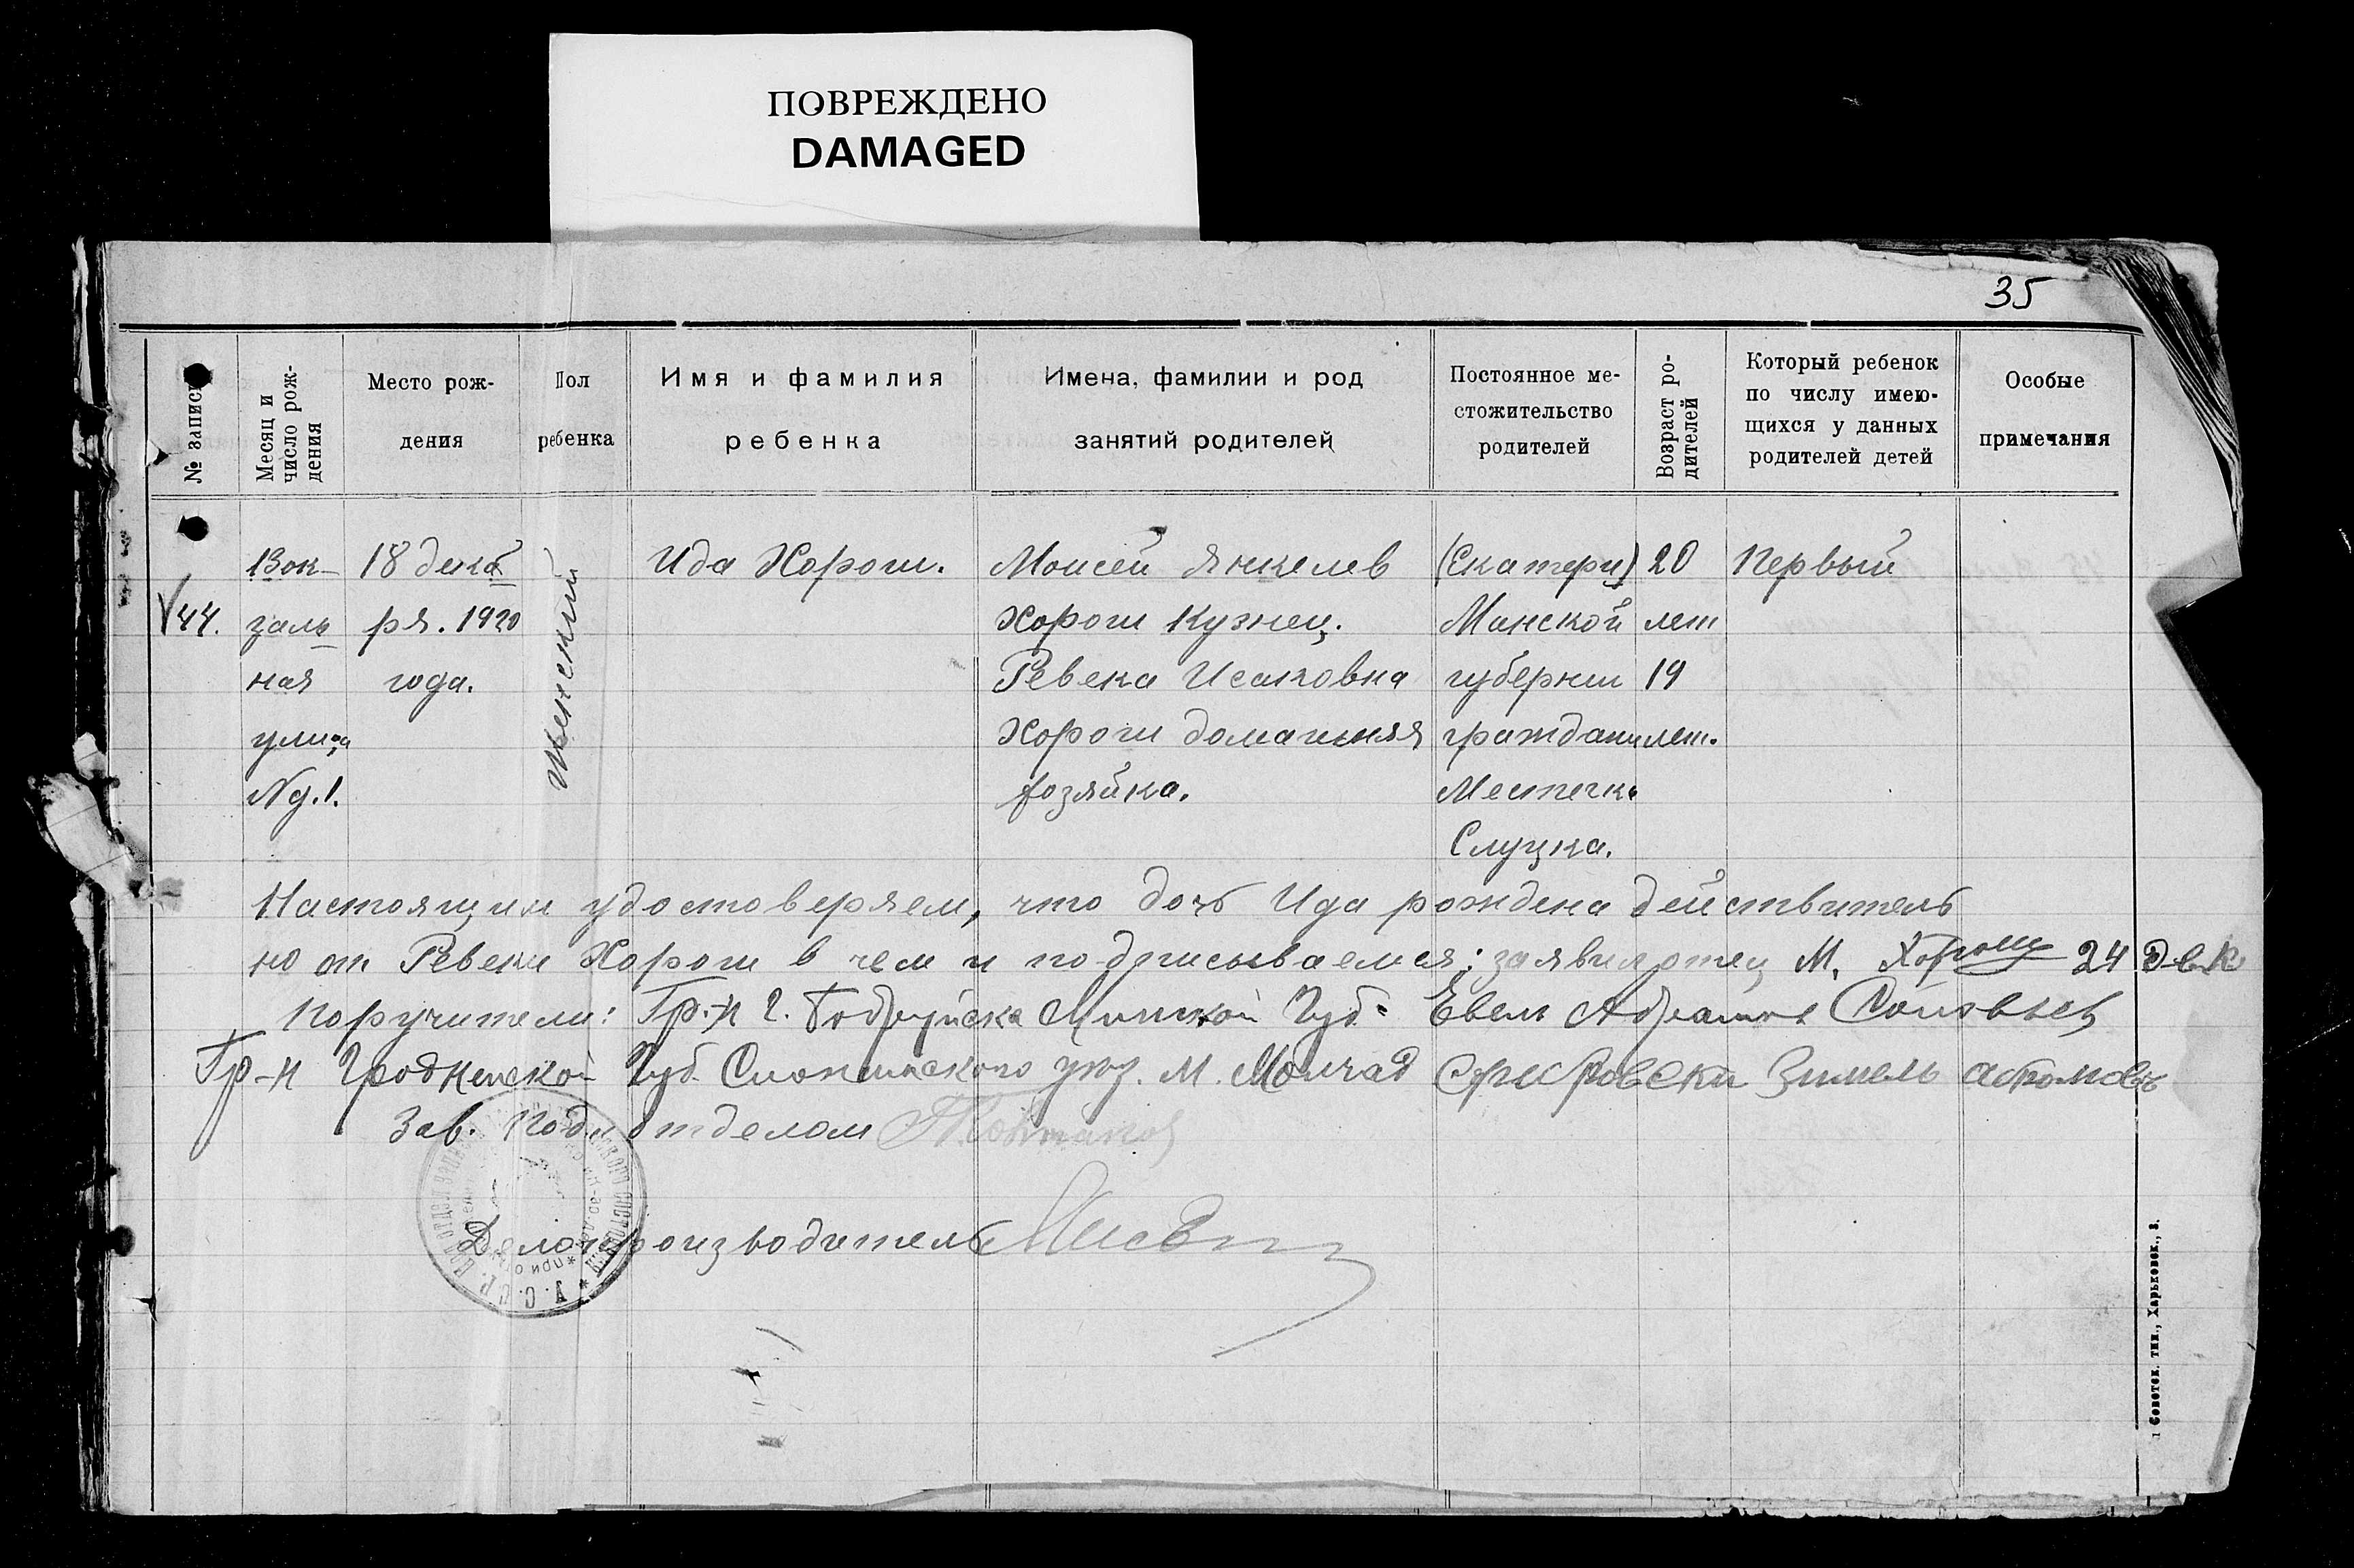 ПОВРЕЖДЕНО
DAMAGED
35
№ записи
Месяц и
число рож-
дения
Место рож-
дения
Пол
ребенка
Имя и фамилия
ребенка
Имена, фамилии и род
занятий родителей
Постоянное ме-
стожительство
родителей
Возраст ро-
дителей
Который ребенок
по числу имею-
щихся у данных
родителей детей
Особые
примечания
44.
Вок-
заль
ная
улица
№д.1.
18 декаб
ря. 1920
года.
женский
Ида Хорош.
Моисей Янкелев
Хорош Кузнец.
Ревека Исаковна
Хорош домашняя
хозяйка.
(Екатери)
Минской
губернии
граждани
Местечка
Слуцка.
20
лет
19
лет.
Первый
Настоящим удостоверяем, что дочь Ида рождена действитель
но от Ревеки Хорош в чем и подписываемся: заявил отец М. Хорош 24 дек
Поручители: Гр-н г. Бобруйска Минской Губ. Евель Абрамов Соловьев
Гр-н Гродненской Губ. Слонимского уез. м. Молчад Зимель Абрамов
Зав. Подотделом
Делопроизводитель
У.С.С.Р.
Советск. тип., Харьковск., 3.